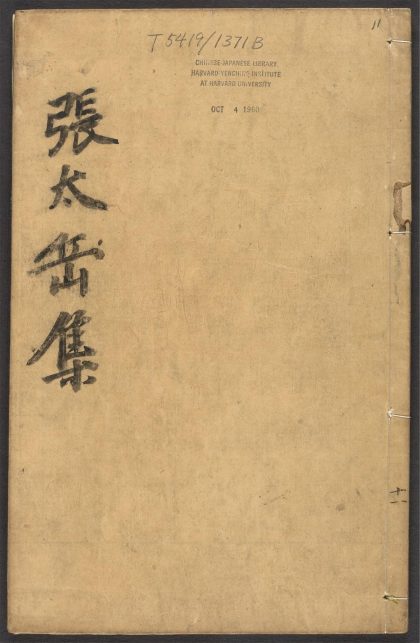 T5419/1371B
11
CHINESE-JAPANESE LIBRARY
HARVARD-YENCHING INSTITUTE
AT HARVARD UNIVERSITY
OCT 4 1960
張太岳集
十一